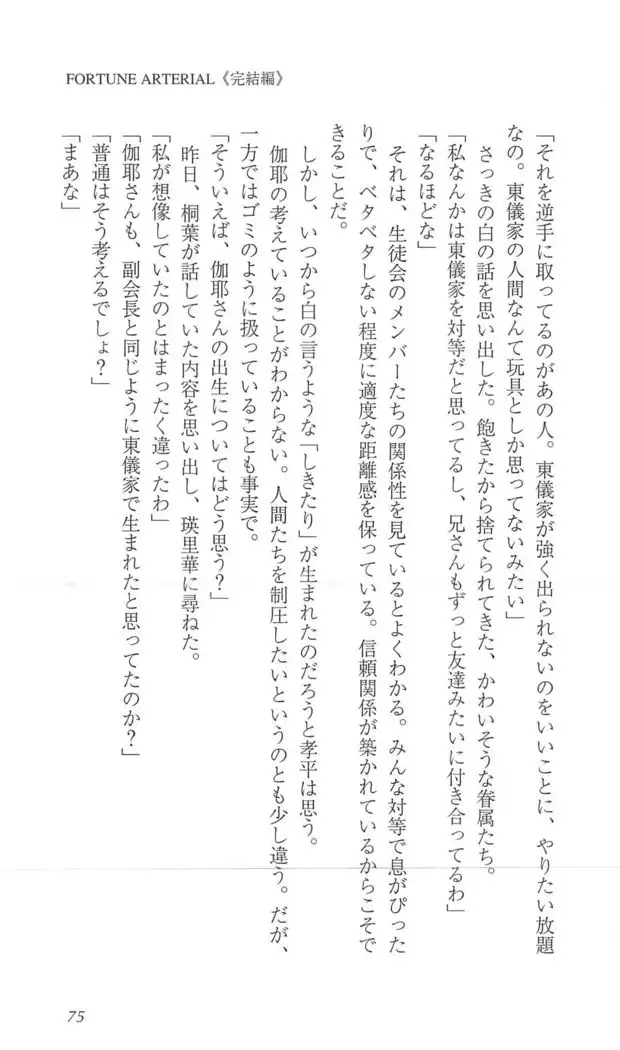 FORTUNE ARTERIAL《完結編》
「それを逆手に取ってるのがあの人。東儀家が強く出られないのをいいことに、やりたい放題
なの。東儀家の人間なんて玩具としか思ってないみたい」
さっきの白の話を思い出した。飽きたから捨てられてきた、かわいそうな眷属たち。
「私なんかは東儀家を対等だと思ってるし、兄さんもずっと友達みたいに付き合ってるわ」
「なるほどな」
それは、生徒会のメンバーたちの関係性を見ているとよくわかる。みんな対等で息がぴった
りで、ベタベタしない程度に適度な距離感を保っている。信頼関係が築かれているからこそで
きることだ。
しかし、いつから白の言うような「しきたり」が生まれたのだろうと孝平は思う。
伽耶の考えていることがわからない。人間たちを制圧したいというのとも少し違う。だが、
一方ではゴミのように扱っていることも事実で。
「そういえば、伽耶さんの出生についてはどう思う?」
昨日、桐葉が話していた内容を思い出し、瑛里華に尋ねた。
「私が想像していたのとはまったく違ったわ」
「伽耶さんも、副会長と同じように東儀家で生まれたと思ってたのか?」
「普通はそう考えるでしょ?」
「まあな」
75